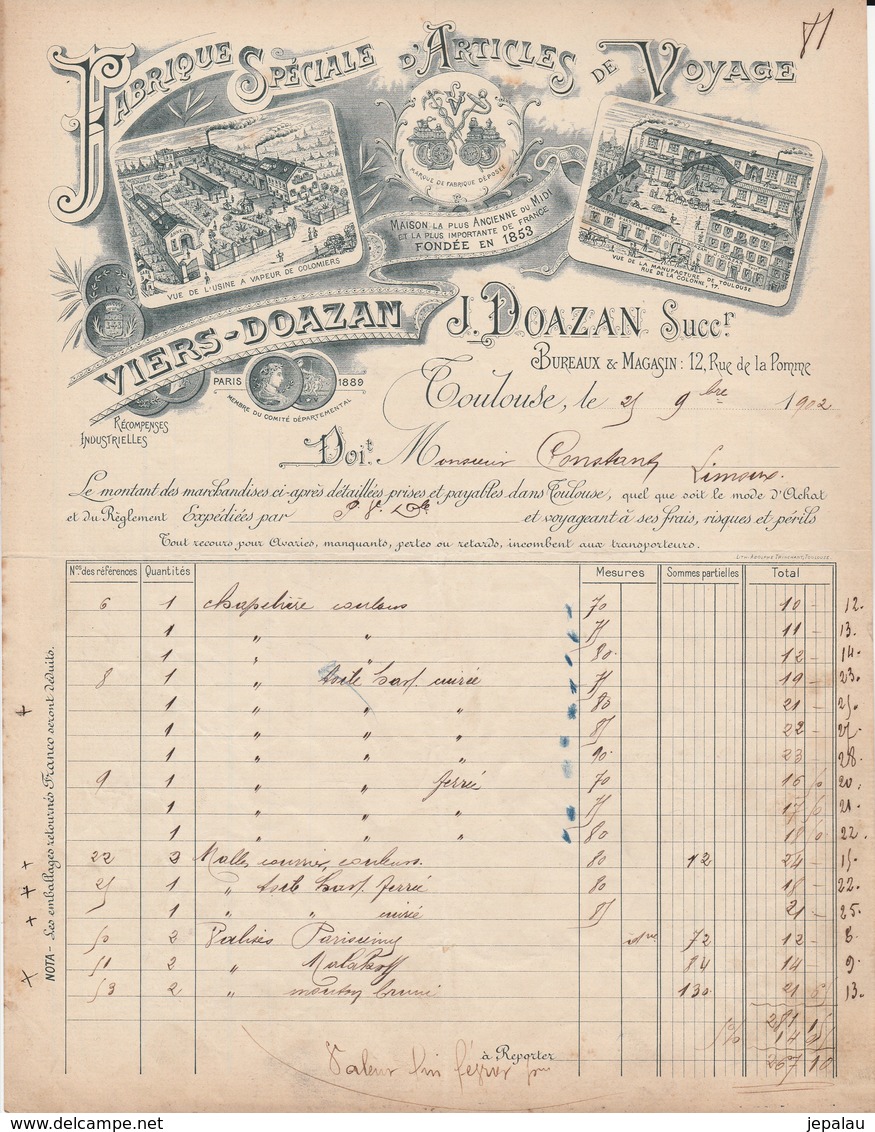 81
FABRIQUE SPÉCIALE D'ARTICLES DE VOYAGE
MARQUE DE FABRIQUE DÉPOSÉE
MAISON LA PLUS ANCIENNE DU MIDI
ET LA PLUS IMPORTANTE DE FRANCE
FONDÉE EN 1853
VUE DE L'USINE A VAPEUR DE COLOMIERS
VUE DE LA MANUFACTURE DE TOULOUSE
RUE DE LA COLONNE, 17.
VIERS-DOAZAN
J. DOAZAN Succr.
BUREAUX & MAGASIN : 12, Rue de la Pomme
PARIS 1889
MEMBRE DU COMITÉ DÉPARTEMENTAL
RÉCOMPENSES
INDUSTRIELLES
Toulouse, le 25 9bre 1902
Doit Monsieur Constant
Limoux.
Le montant des marchandises ci-après détaillées prises et payables dans Toulouse, quel que soit le mode d'Achat
et du Règlement Expédiées par P. V. et voyageant à ses frais, risques et périls
Tout recours pour Avaries, manquants, pertes ou retards, incombent aux transporteurs.
Nos. des références Quantités Mesures Sommes partielles Total
6 1 chapelière couleurs 70 10 - 12.
1 " " 75 11 - 13.
1 " " 80. 12 - 14.
8 1 " toile 75 19 - 23.
1 " " " 80 21 - 25.
1 " " " 85 22 - 27.
1 " " " 90. 23 - 28.
9 1 " " ferrée 70 16 50 20.
1 " " " 75 17 50 21.
1 " " " 80 18 50 22.
22 2 Malles courrier couleurs. 80 12 24 - 15.
25 1 " toile ferrée 80 18 - 22.
1 " " 85 21 - 25.
50 2 Valises 72 12 - 8.
51 2 " Malakoff 84 14 - 9.
53 2 " mouton 130. 21 65 13.
281 15
5% 14 05
à Reporter 267 10
Valeur fin février
NOTA - Les emballages retournés Franco seront déduits.
delcampe.net
jepalau